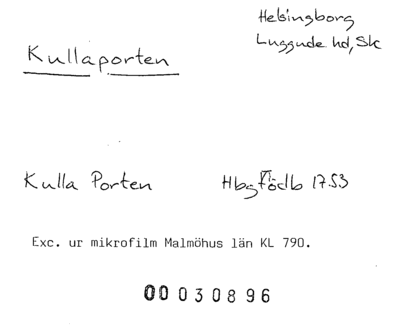 Helsingborg
Luggude hd, Sk
Kullaporten
Kulla Porten Hbg Födlb 1753
Exc. ur mikrofilm Malmöhus län KL 790.
00 030896